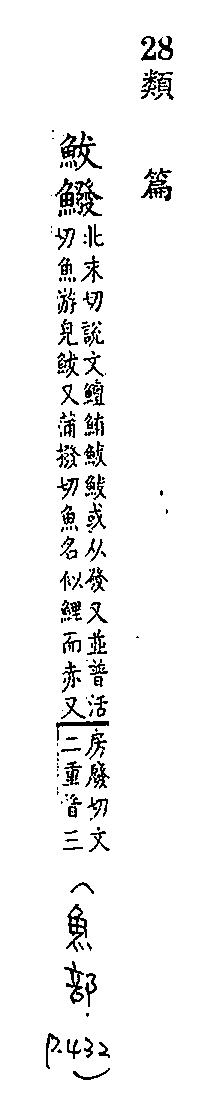 28類 篇
鮁鱍北末切說文鱣鮪鮁鮁或从發又並普活
切魚游皃鮁又蒲撥切魚名似鯉而赤又
房廢切文
二重音三
(魚部.
P.432)